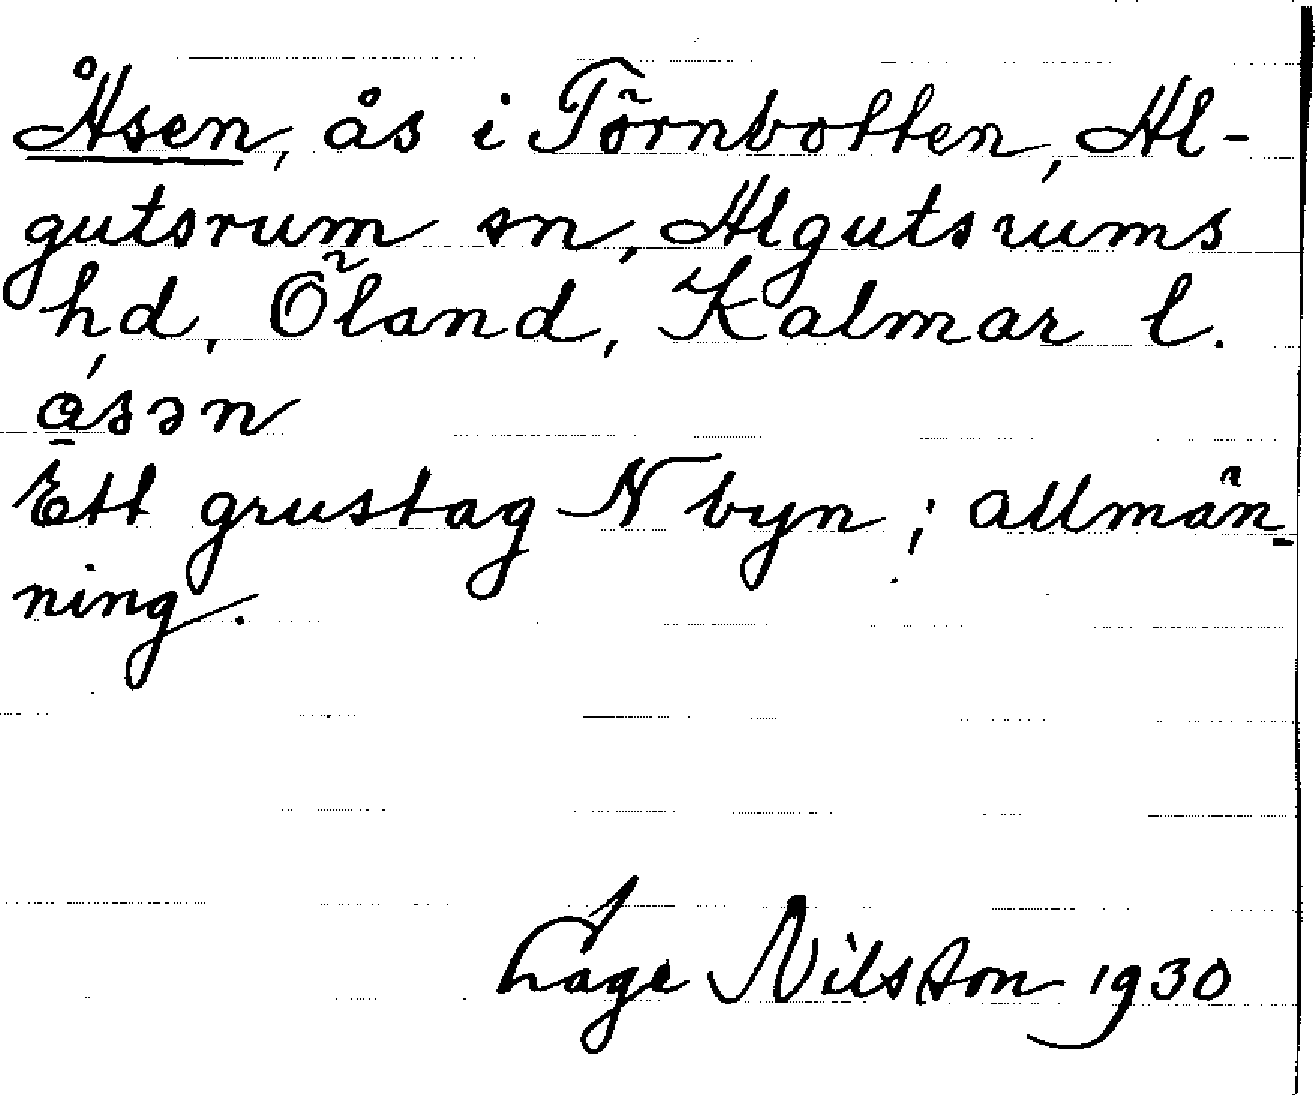 Åsen, ås i Törnbotten, Al-
gutsrum sn, Algutsrums
hd, Öland, Kalmar l.
åsən
Ett grustag N byn; allmän-
ning.
Låge Nilsson 1930